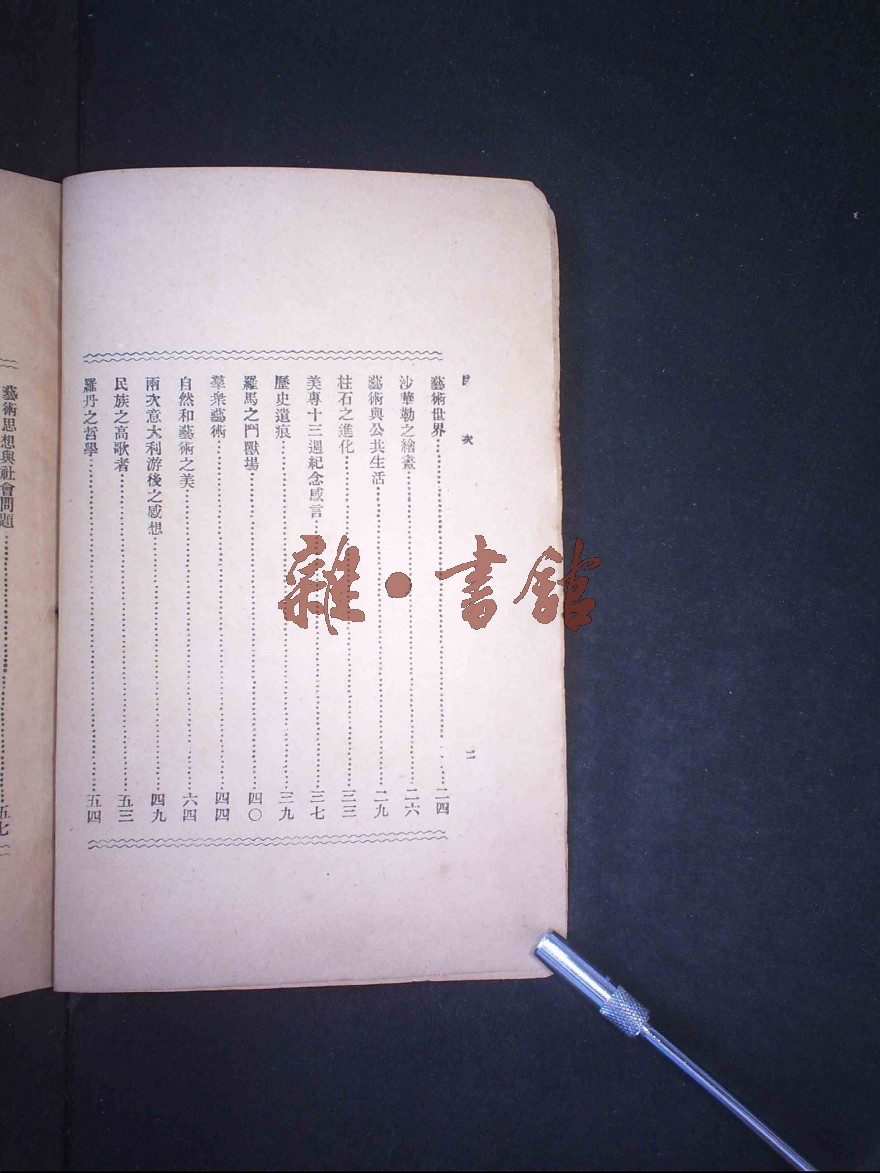 目次
二
藝術世界……二四
沙華勒之繪畫……二六
藝術與公共生活……二九
柱石之進化……三三
美專十三週紀念感言……三七
歷史遺痕……三九
羅馬之鬥獸場……四〇
羣衆藝術……四四
自然和藝術之美……六四
兩次意大利游後之感想……四九
民族之高歌者……五三
羅丹之哲學……五四
藝術思想與社會問題……五七
雜·書館